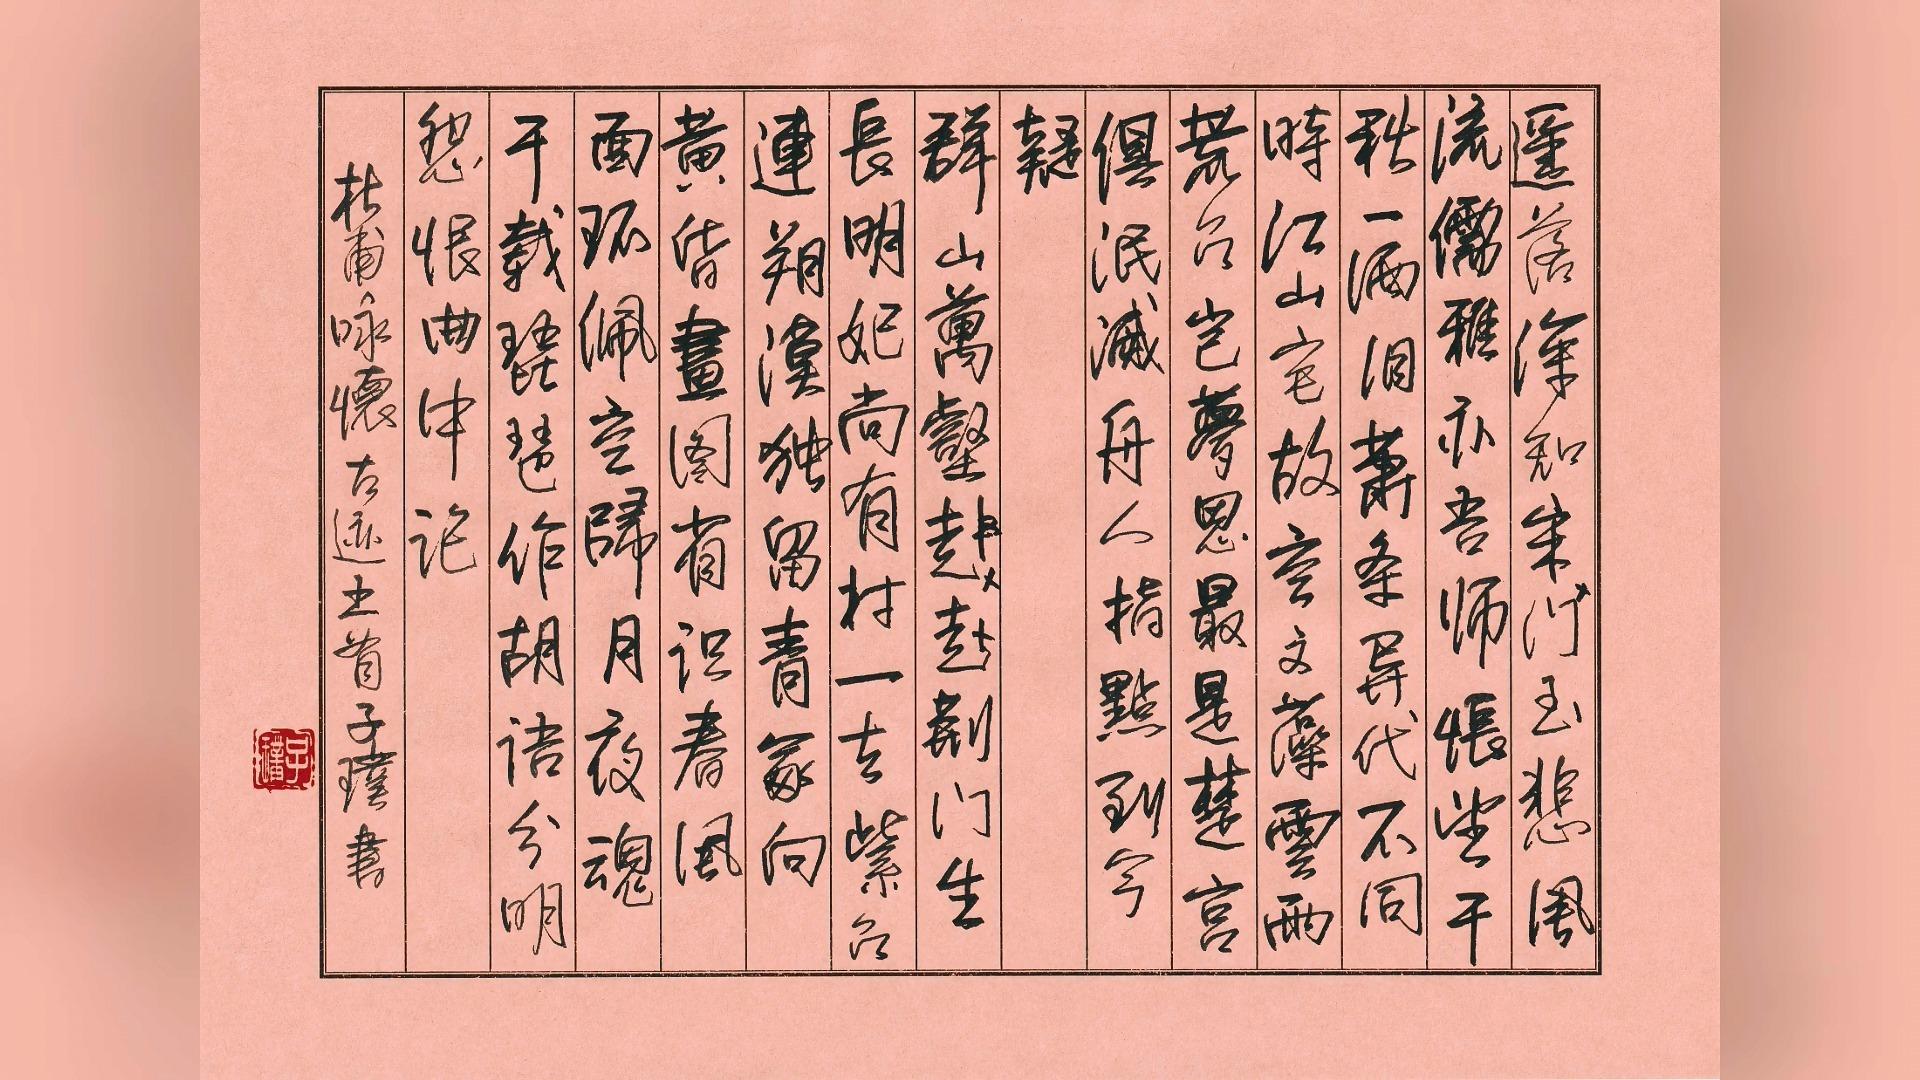 遥落深知宋门玉悲风
流儒雅亦吾师悵望千
秋一洒泪萧条异代不同
時江山宅故空文藻雲雨
荒台岂夢思最是楚宫
俱泯滅舟人指點到今
疑
群山萬壑赴赴荆门生
長明妃尚有村一去紫台
連朔漠独留青冢向
黄昏畫图省识春风
面环佩空歸月夜魂
千載琵琶作胡语分明
怨恨曲中论
杜甫咏懷古迹五首子璞書
子璞